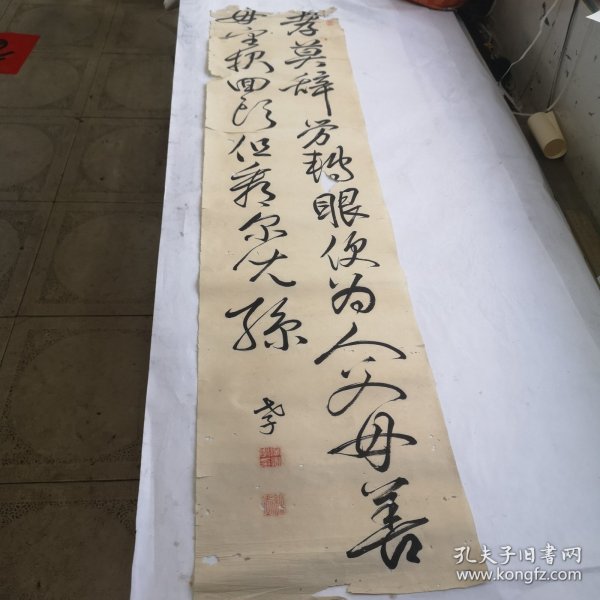 孝莫辞劳转眼便为人父母善
毋望报回头但看尔儿孙
孔夫子旧书网
www.kongfz.com